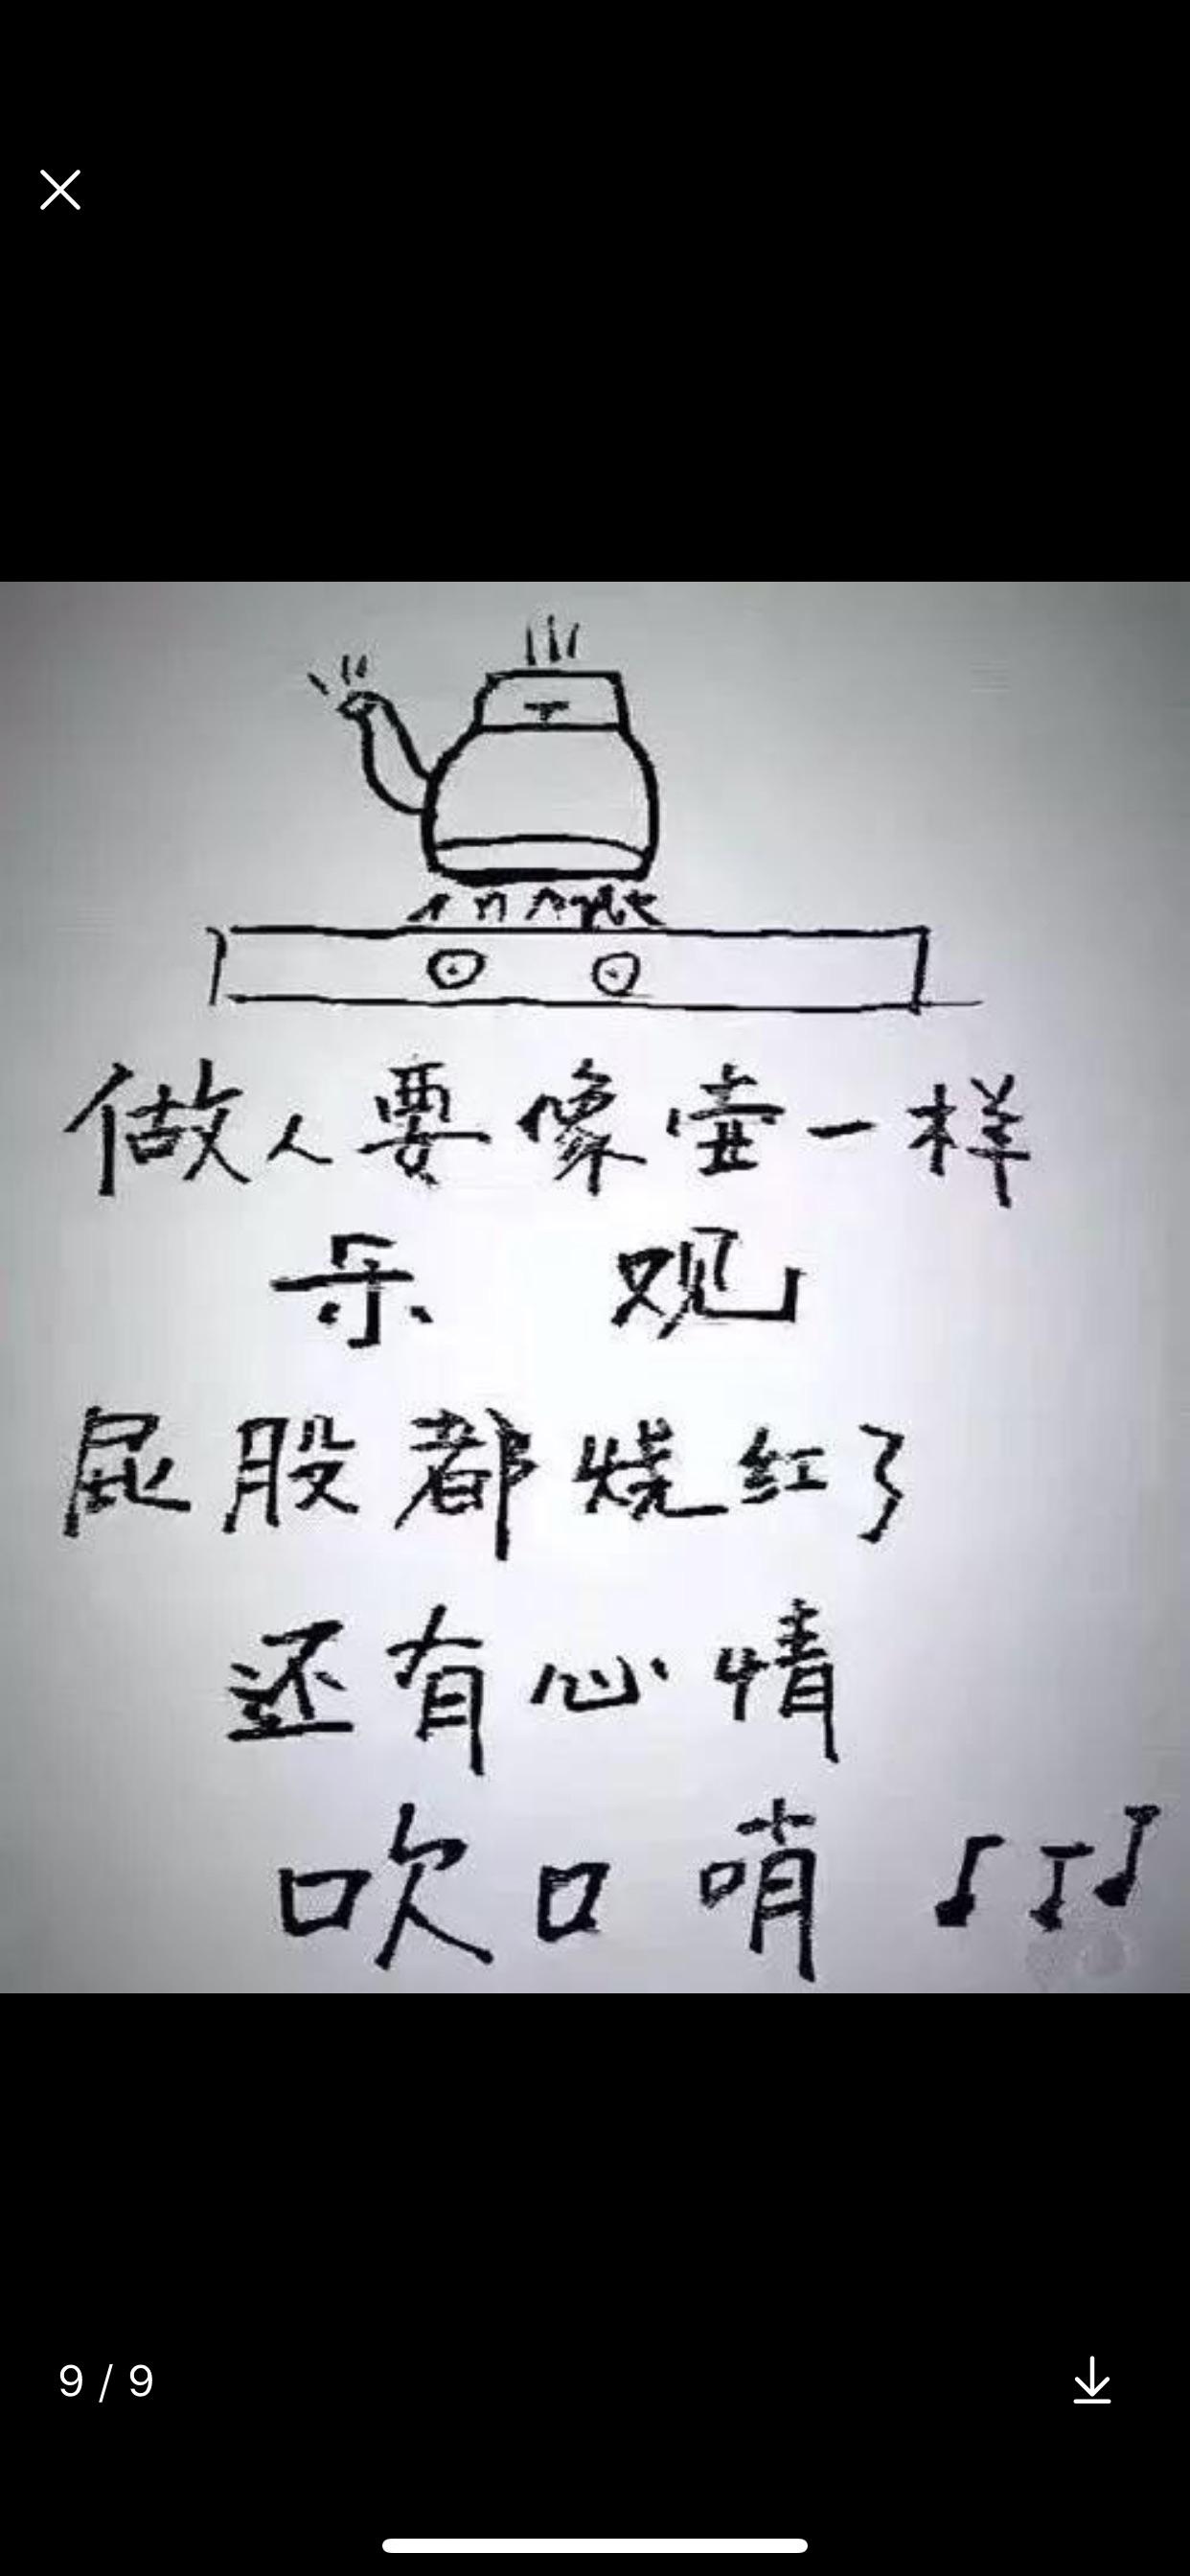 做人要像壶一样
乐 观
屁股都烧红了
还有心情
吹口哨
9 / 9